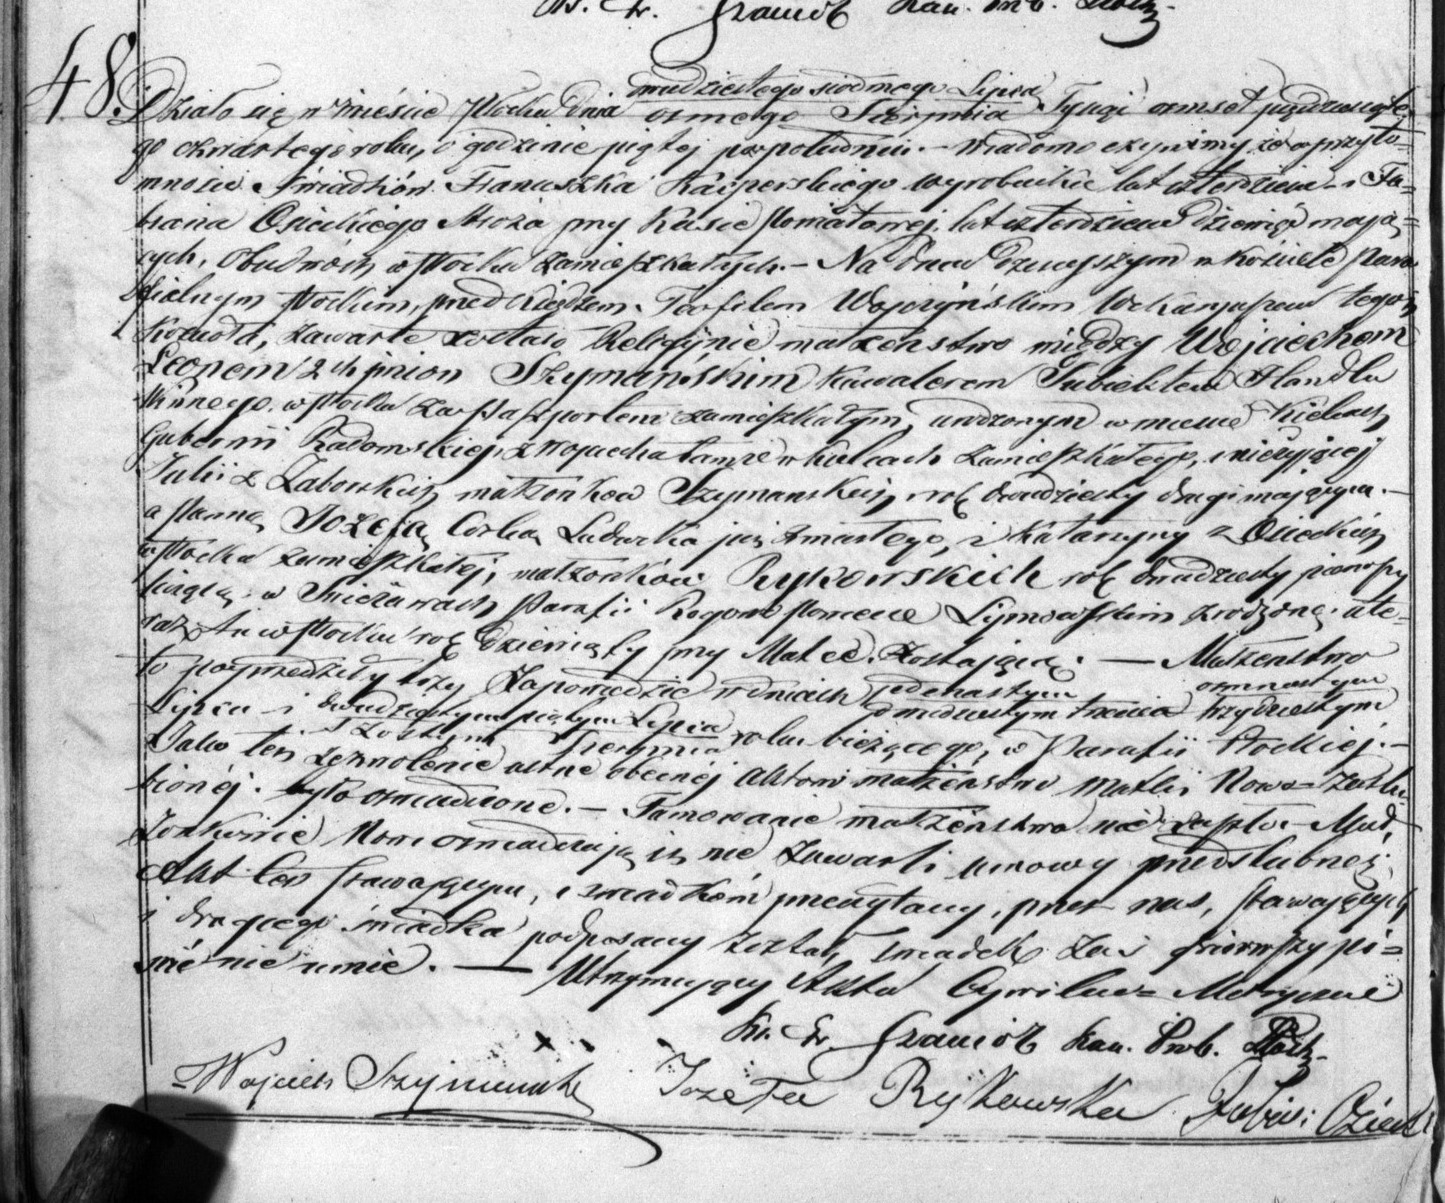 Ks. Fr. Szamot Kan. Prob. Płock.
48.
dwudziestego siódmego Lipca
Działo się w Mieście Płocku dnia osmego Sierpnia Tysiąc ośmset pięćdziesiąte-
go czwartego roku, o godzinie piątej popołudniu. – Wiadomo czynimy, że w przyto-
mności Świadków Franciszka Kacperskiego wyrobnika lat czterdzieści – i Fa-
biana Osieckiego Stróża przy Kasie Powiatowej, lat czterdzieści dziewięć mają-
cych, obudwóch w Płocku zamieszkałych. – Na dniu dzisiejszym w kościele para-
fialnym Płockim, przed Księdzem Teofilem Wojczyńskim Wikaryuszem tegoż
Kościoła, zawarte zostało Religijnie małżeństwo między Wojciechem
Leonem 2ch imion Szymańskim kawalerem Subiektem Handlu
Winnego, w Płocku za Paszportem zamieszkałym, urodzonym w mieście Kielcach
Gubernii Radomskiej, z Wojciecha tamże w Kielcach zamieszkałego, i nieżyjącej
Julii z Zaborskich małżonków Szymańskich, rok dwudziesty drugi mającym. –
a Panną Józefą Córką Ludwika już zmarłego, i Katarzyny z Osieckich
w Płocku zamieszkałej, małżonków Rykowskich rok dwudziesty pierwszy
liczącą, w Parafii Rogowo Powiecie Lipnowskim zrodzoną, a te-
raz tu w Płocku rok dziewiąty przy Matce zostającą. — Małżeństwo
to poprzedziły trzy Zapowiedzie w dniach jedenastym osmnastym
dwudziestym trzecim trzydziestym
Lipca i dwudziestym piątym Lipca
Szóstym Sierpnia roku bieżącego, w Parafii Płockiej. –
Jako też zezwolenie ustne obecnej Aktowi małżeństwa Matki Nowo-Zaślu-
bionéj było oświadczone. – Tamowanie małżeństwa nie zaszło. – Mał-
żonkowie Nowi oświadczają iż nie zawarli umowy przedślubnej,
Akt ten stawającym, i świadkom przeczytany, przez nas, stawających
i drugiego świadka podpisany został, świadek zaś pierwszy pi-
sać nie umie. — Utrzymujący Akta Cywilne
Ks. Fr. Szamot Kan. Prob. Płock.
Wojciech Szymański Józefa Rykowska Fabian Osiecki